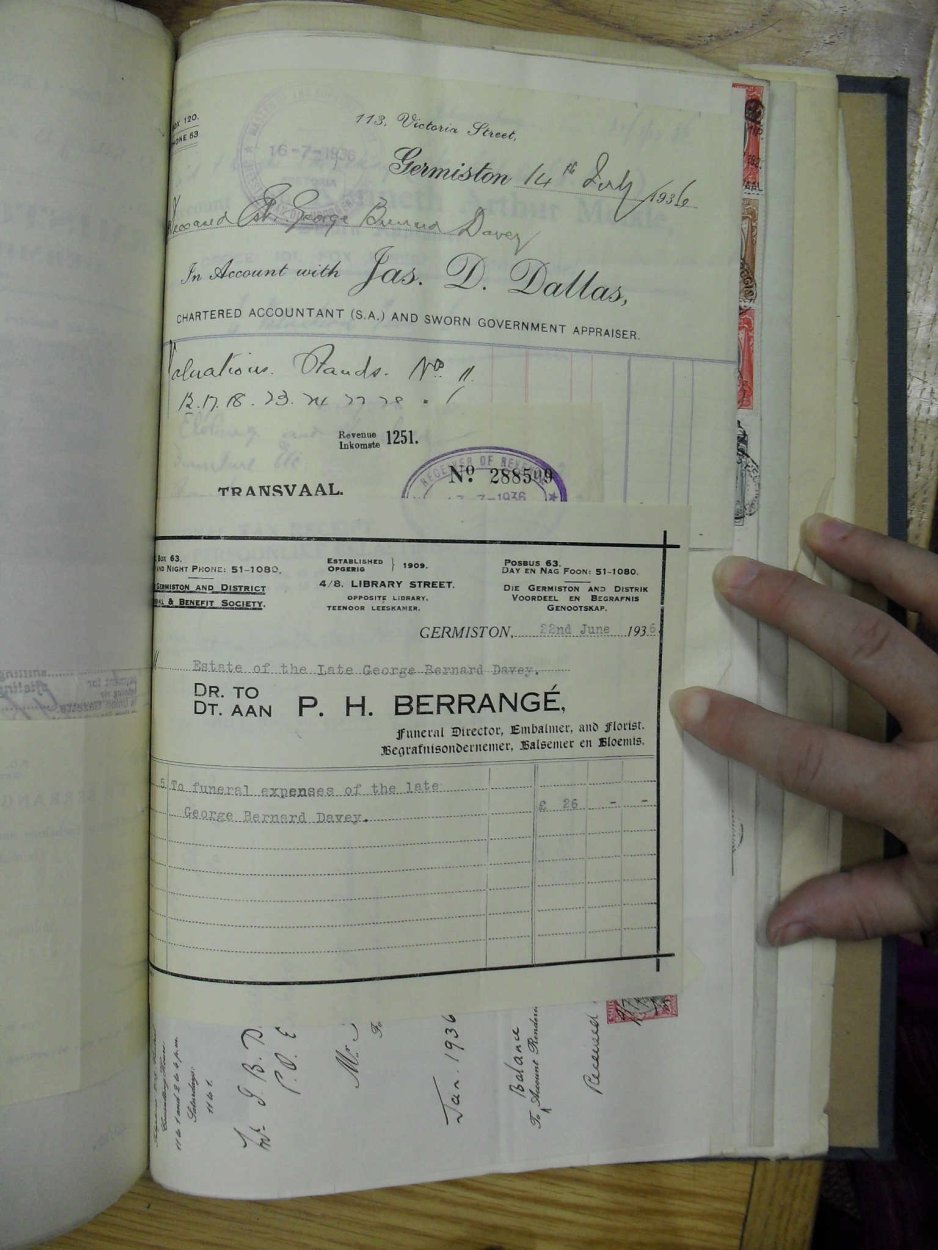 BOX 120.
PHONE 63
113, Victoria Street,
16-7-1936
Germiston 14th July 1936
Deceased Est. George Bernard Davey
In Account with Jas. D. Dallas,
CHARTERED ACCOUNTANT (S.A.) AND SWORN GOVERNMENT APPRAISER.
Valuations. Stands. Nos 11.
12.17.18.23.24
Revenue
Inkomste 1251.
RECEIVER OF REVENUE
No 288509
TRANSVAAL.
7-1936
Box 63.
AND NIGHT PHONE: 51-1080.
GERMISTON AND DISTRICT
& BENEFIT SOCIETY.
ESTABLISHED
OPGERIG } 1909.
4/8. LIBRARY STREET.
OPPOSITE LIBRARY.
TEENOOR LEESKAMER.
POSBUS 63.
DAY EN NAG FOON: 51-1080.
DIE GERMISTON EN DISTRIK
VOORDEEL EN BEGRAFNIS
GENOOTSKAP.
GERMISTON, 22nd June 1936
Estate of the Late George Bernard Davey.
DR. TO
DT. AAN P. H. BERRANGÉ,
Funeral Director, Embalmer, and Florist.
Begrafnisondernemer, Balsemer en Bloemis.
5 To funeral expenses of the late
George Bernard Davey. £ 26 - -
11 to 1 and 2 to 4 p.m.
Saturdays:
11 to 1.
Mr.
To
Jan. 1936
Balance
To Account Rendered
Received